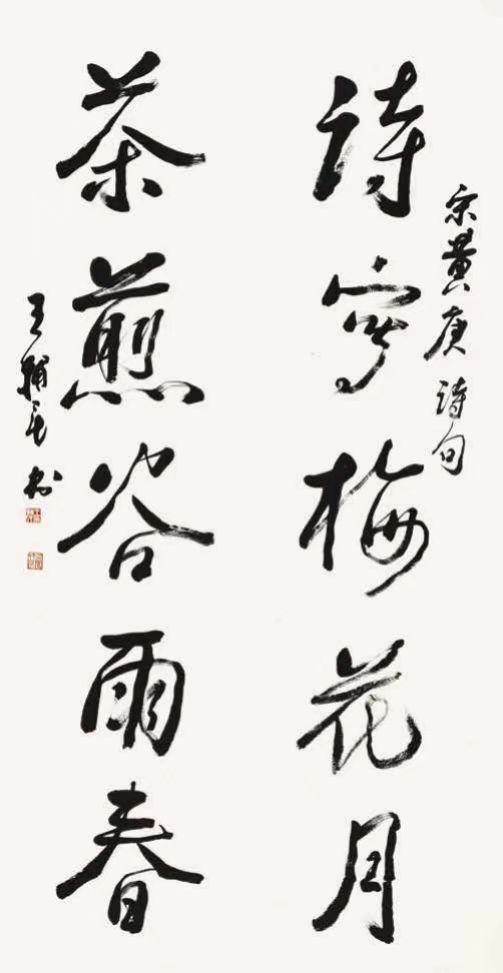 宋黄庚诗句
诗写梅花月
茶煎谷雨春
王辅民书